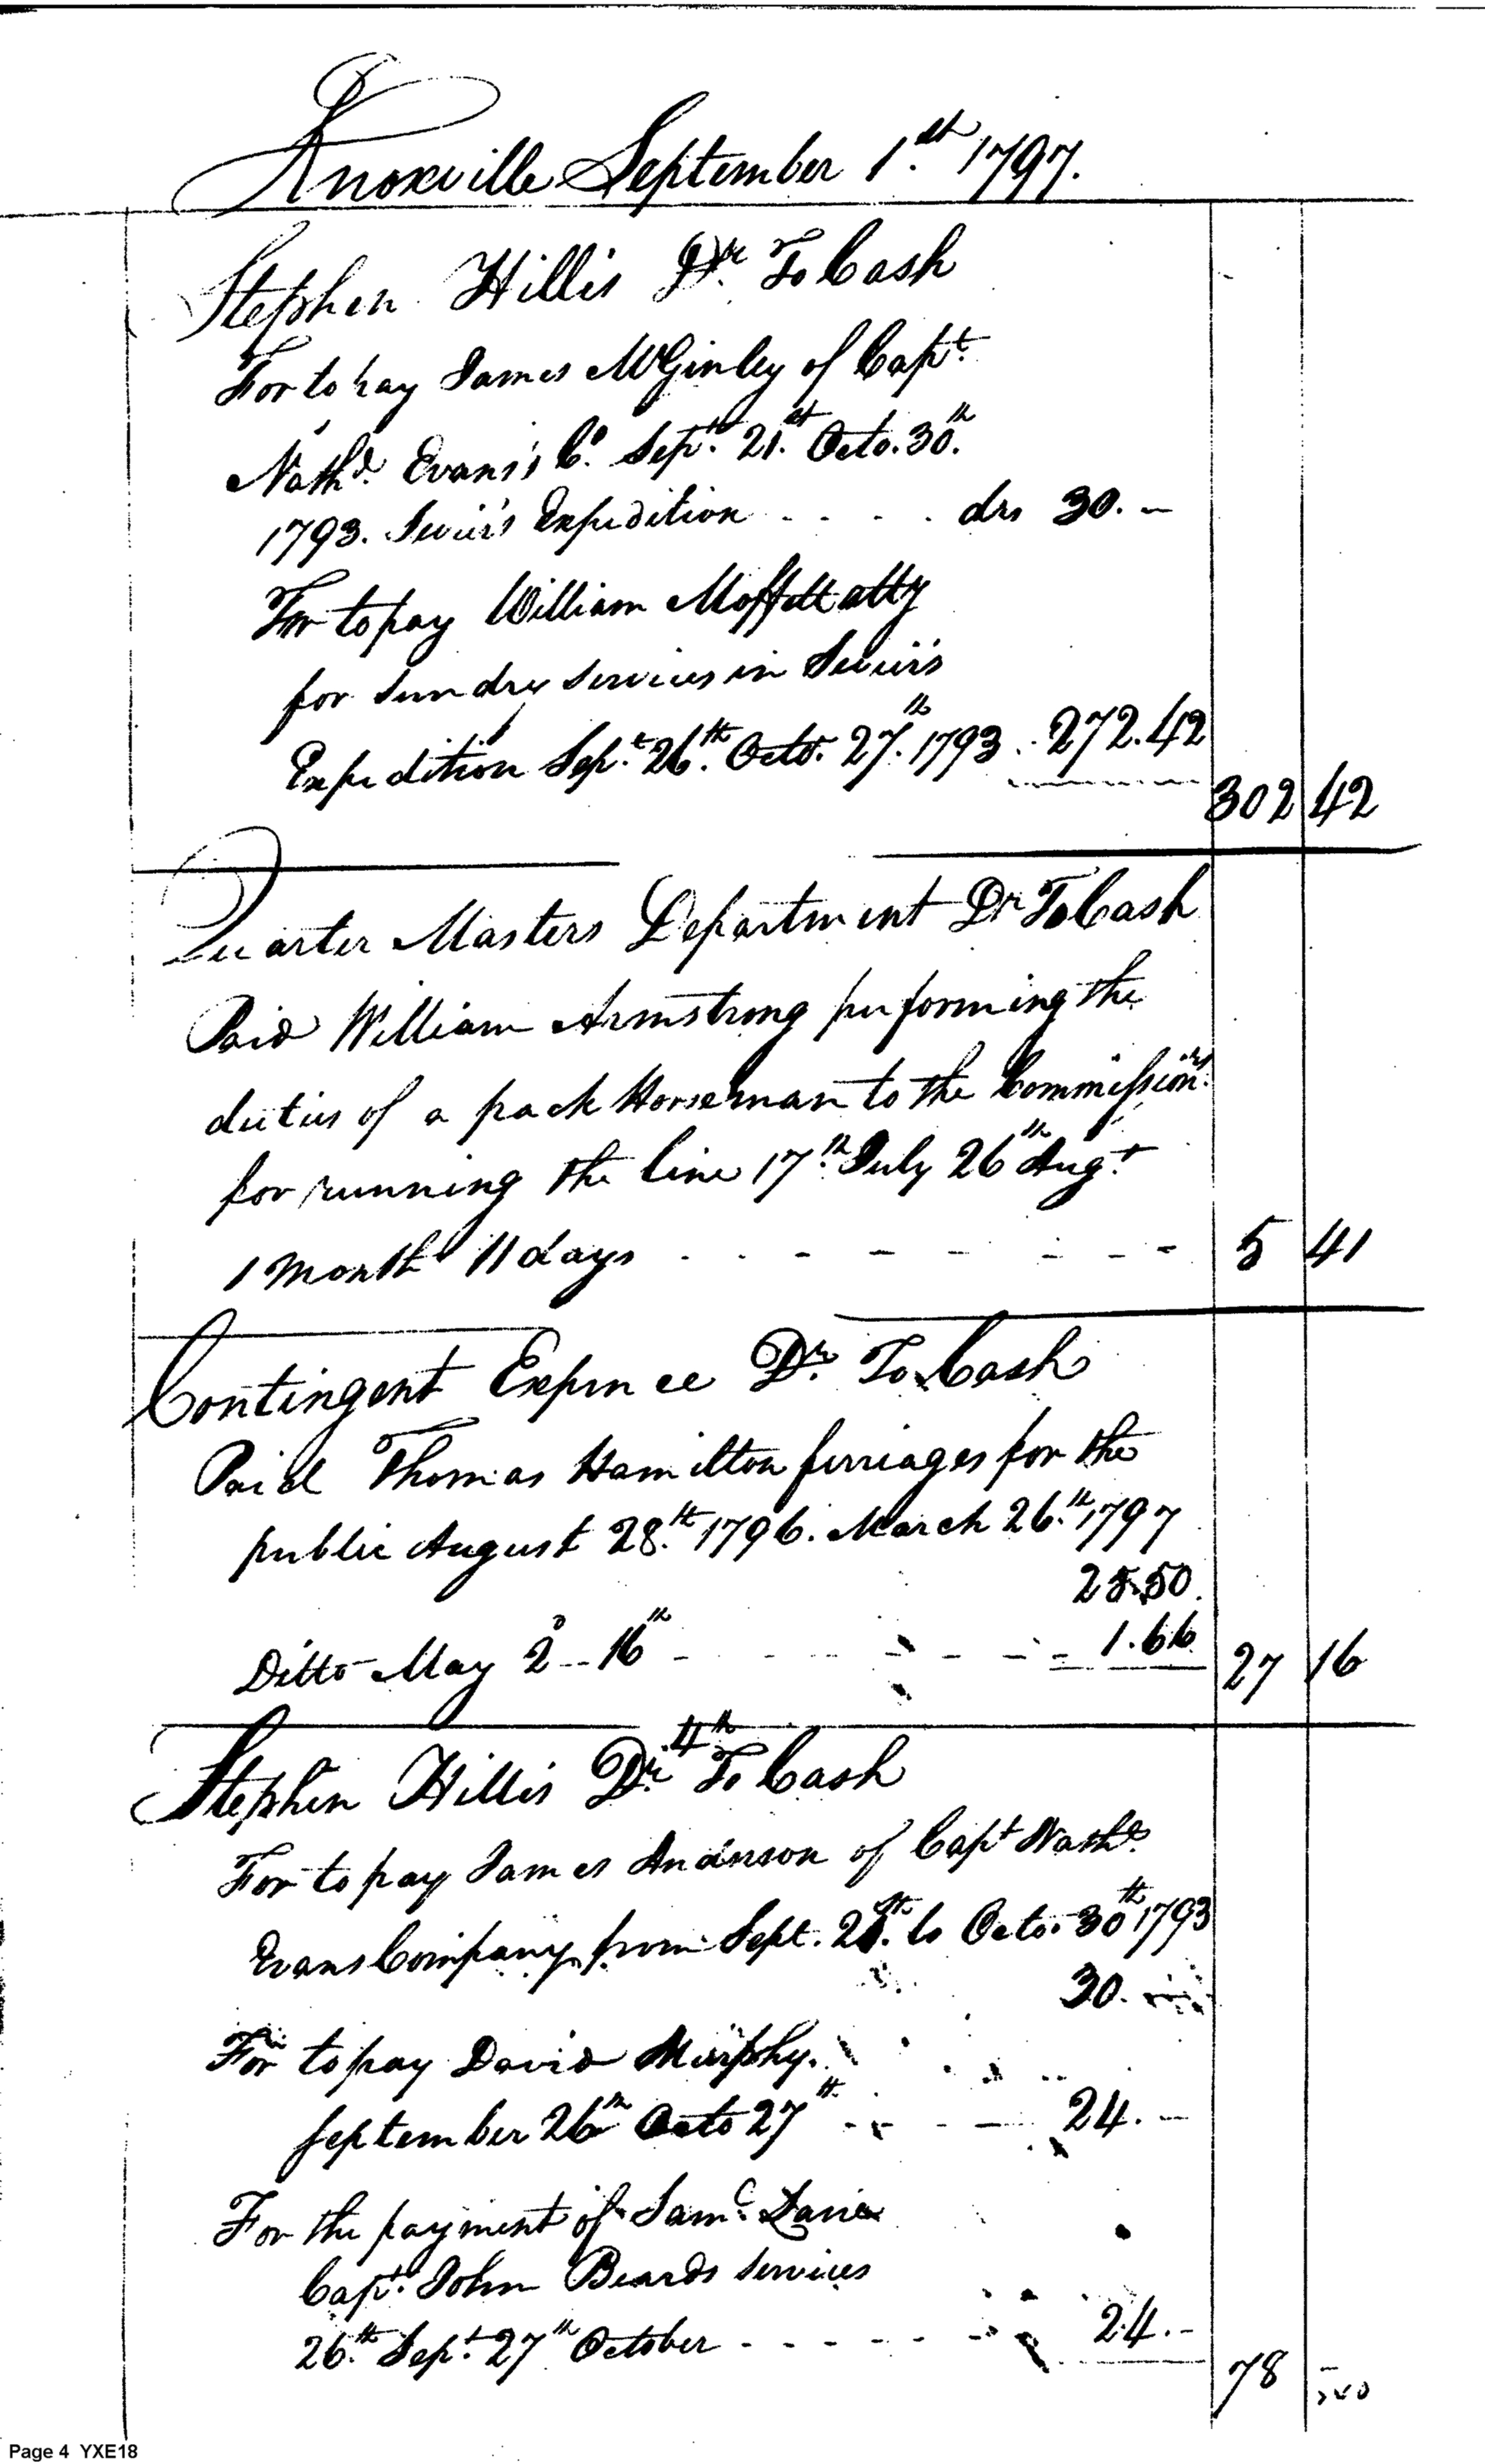 Knoxville September 1.st 1797.
Stephen Hillis Dr. To Cash
For to pay James McGinley of Capt.
Nathl. Evans's Co. Sept. 21.st Octo. 30.th
1793. Sevier's Expedition . . . . drs 30. –
For to pay William Moffett atty
for sundry services in Sevier's
Expedition Sept. 26.th Octo. 27.th 1793 . . 272.42
302 42
Quarter Masters Department Dr To Cash
Paid William Armstrong performing the
duties of a pack Horseman to the Commissionrs.
for running the line 17.th July 26th Augt.
1 Month 11 days . . - - - - - - 5 41
Contingent Expence Dr. To Cash
Paid Thomas Hamilton ferriages for the
public August 28.th 1796. March 26.th 1797
25.50.
Ditto May 2d -- 16th - - - - - - - 1.66 27 16
4th
Stephen Hillis Dr. To Cash
For to pay James Anderson of Capt Nathl.
Evans Company from Sept. 21.st to Octo. 30th 1793
30.
For to pay David Murphy.
September 26th Octo 27th - - - - 24. –
For the payment of Saml.
Capt. John Beards services
26.th Sept. 27th October - - - - - - 24. -
78 –
Page 4 YXE18